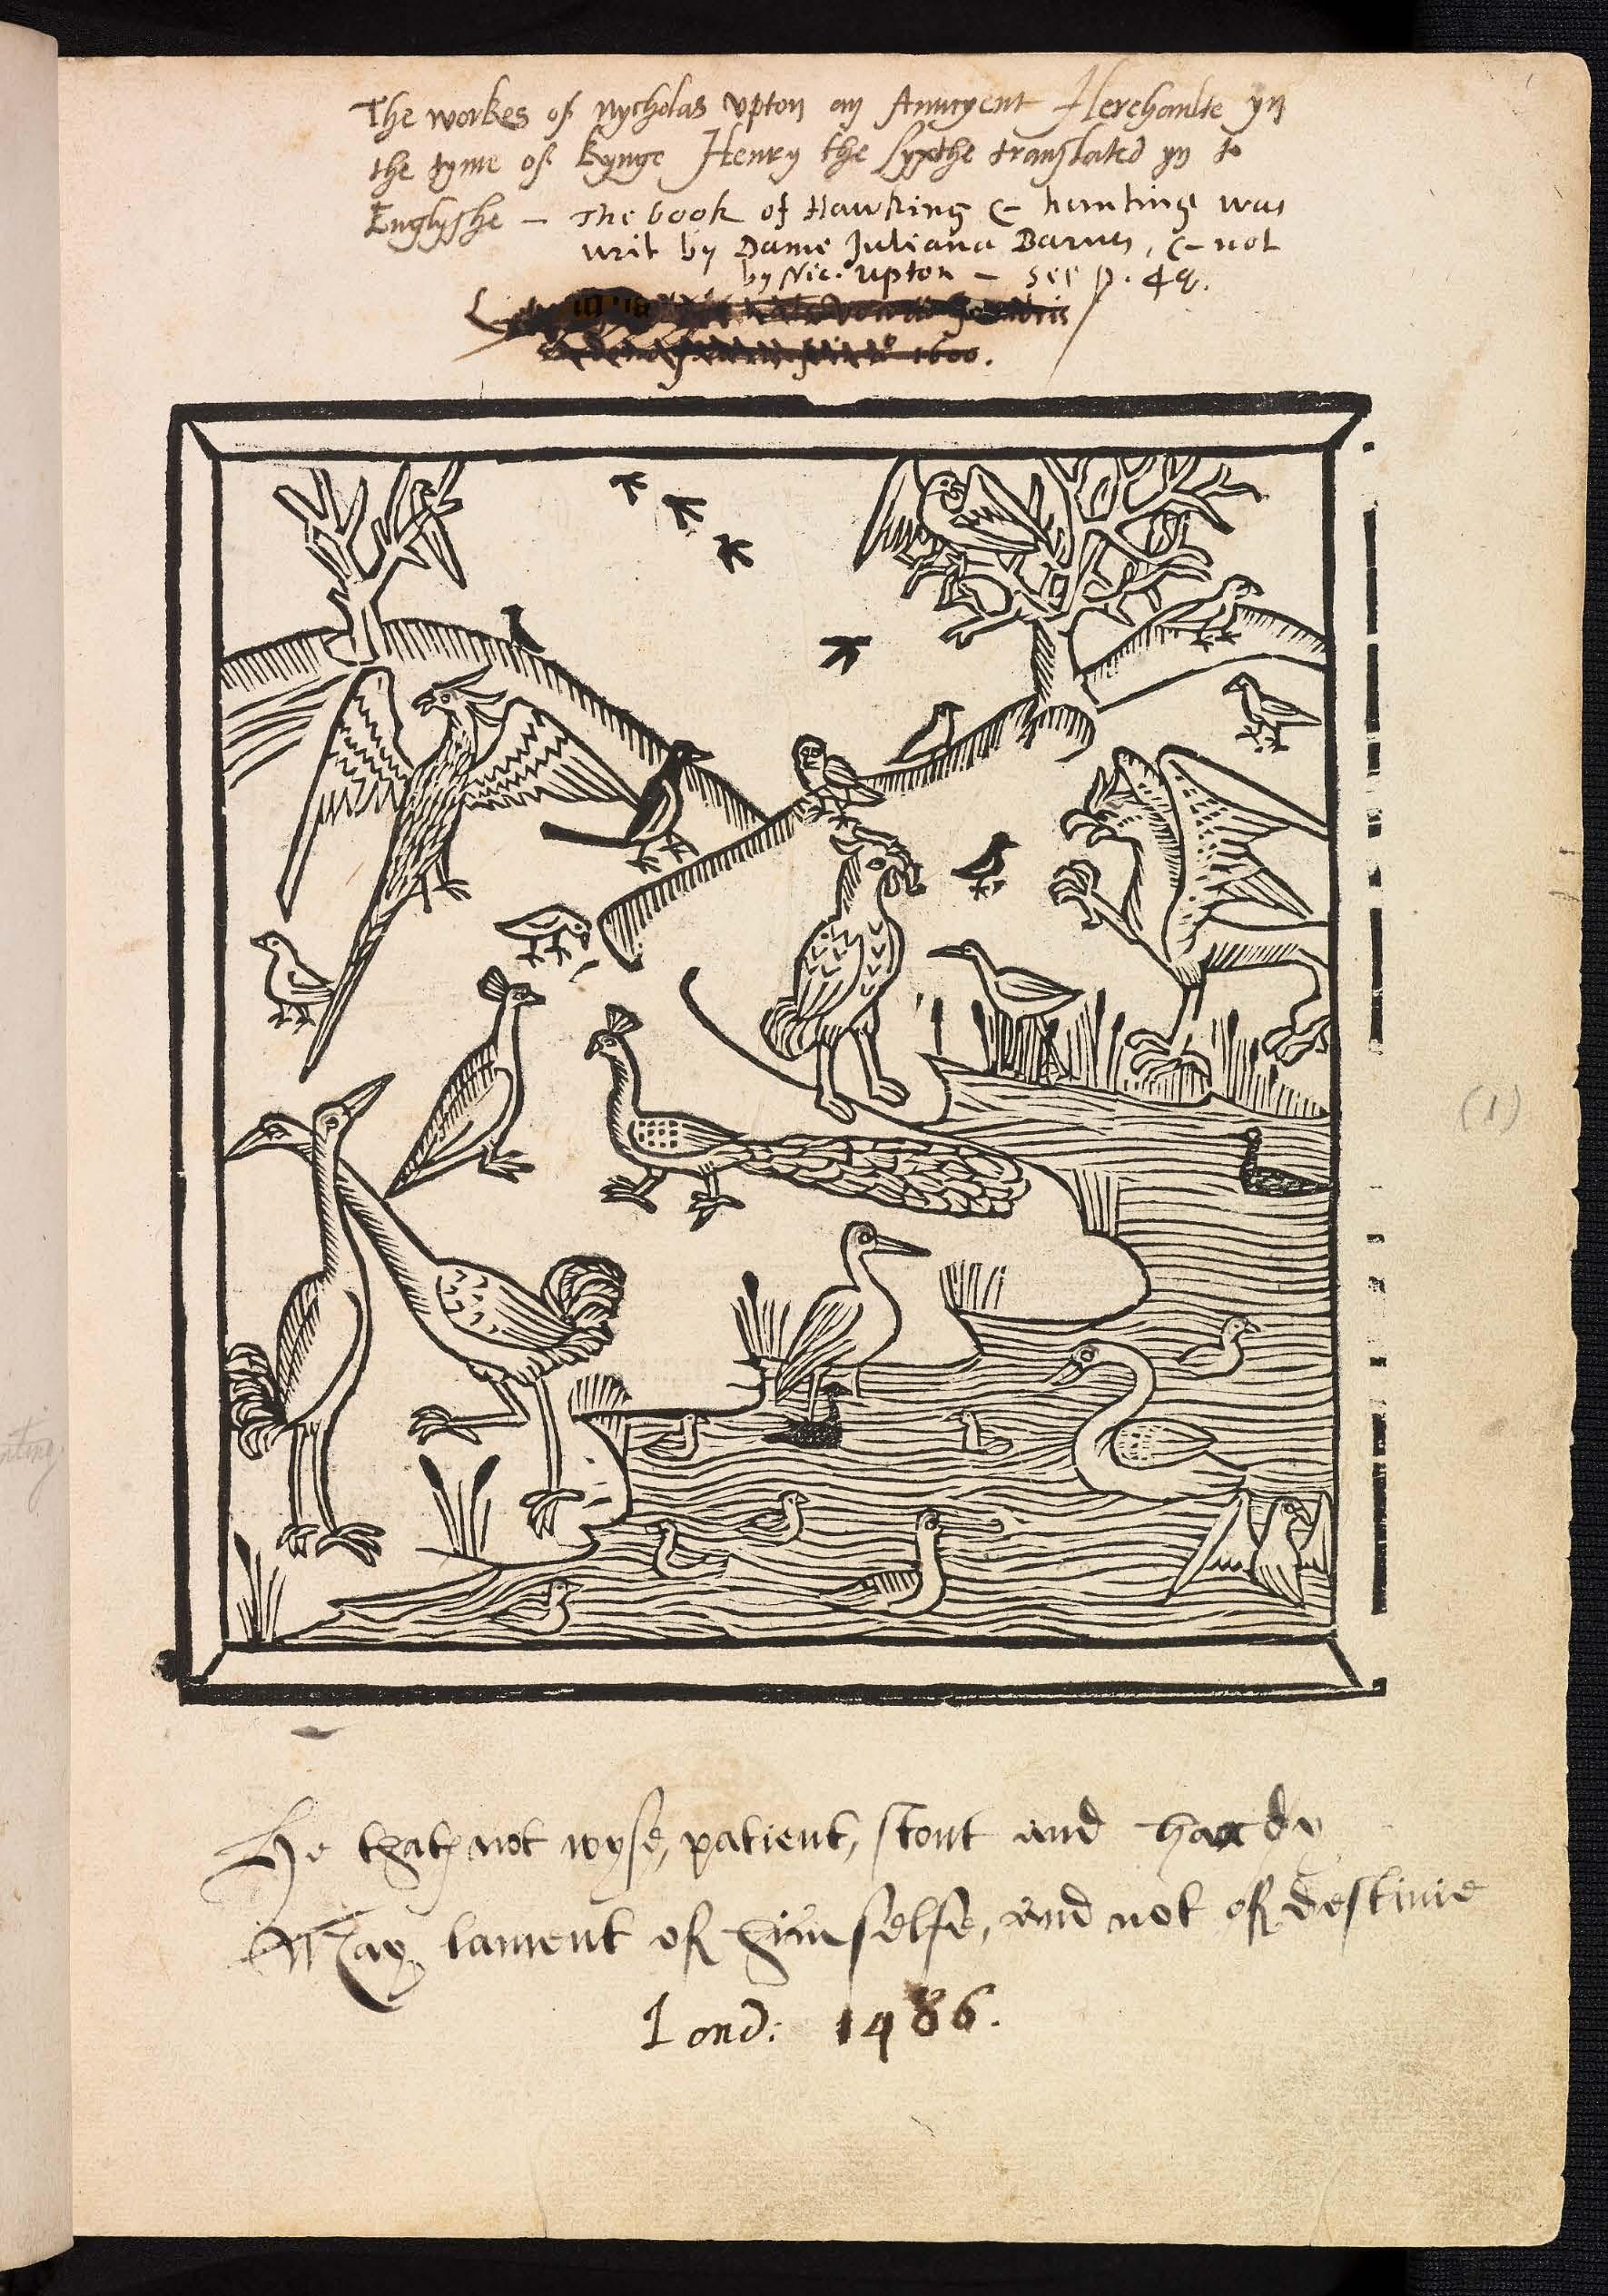 The workes of nycholas vpton an Auncyent Herehaulte yn
the tyme of kynge Henry the syxthe translated yn to
Englyshe – The book of Hawking & hunting was
writ by Dame Juliana Barns, & not
by Nic. Upton – see p. 48.
1600.
(1)
He that not wyse, patient, stout and hardy
May lament of himselfe, and not of destinie
Lond: 1486.